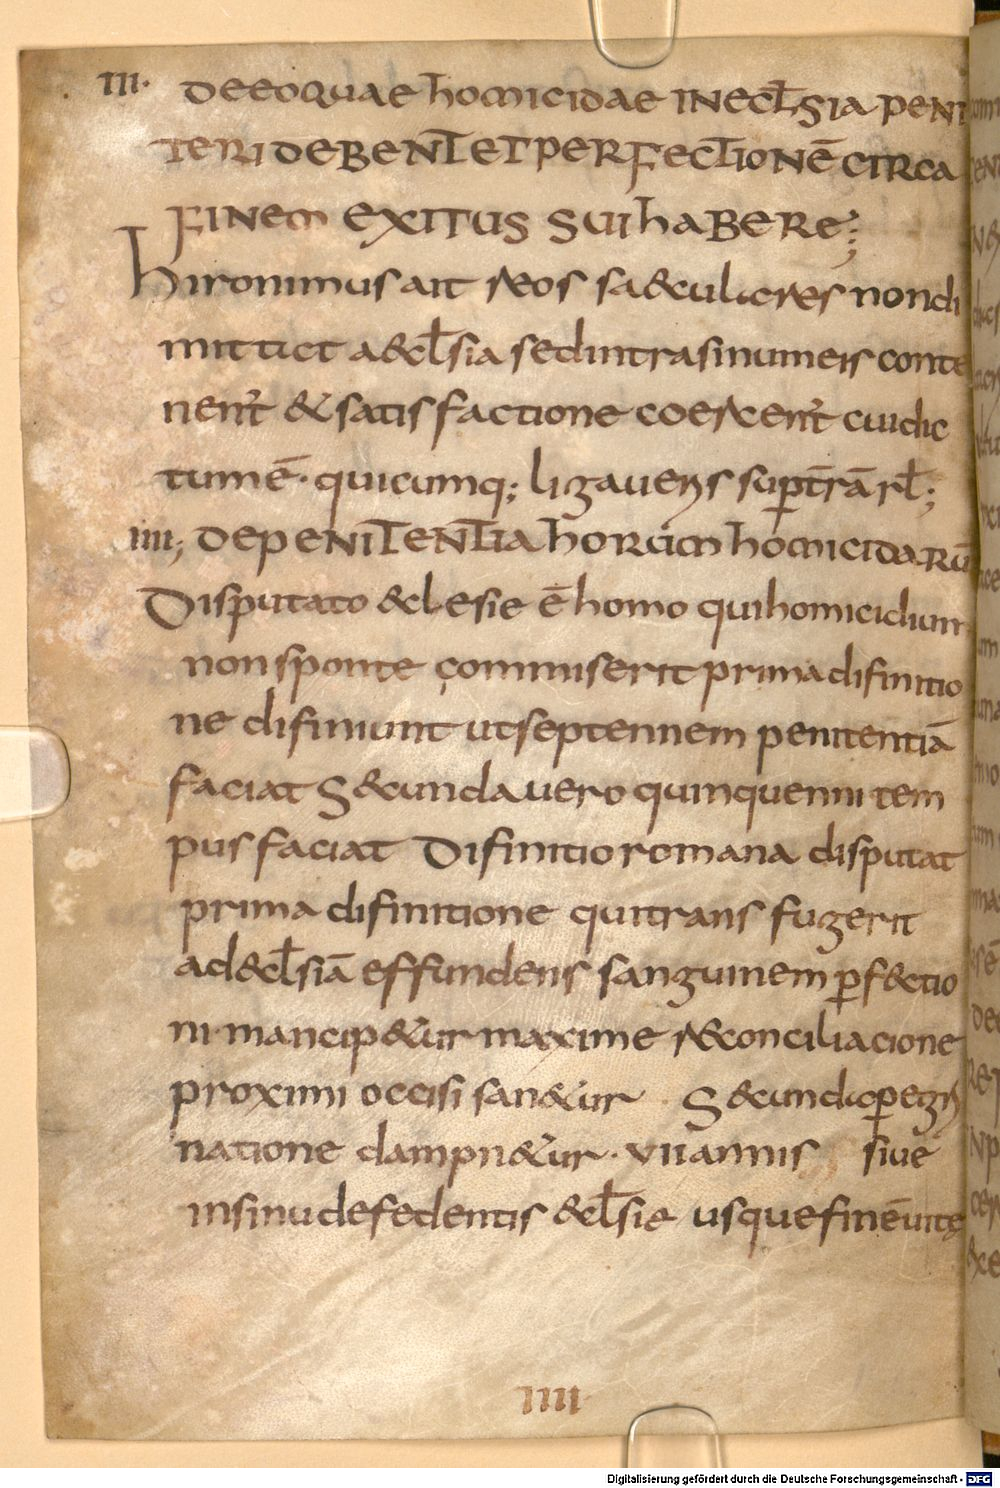 III. DE EO QUAE homicidae IN ECŁSIA PENI
TERI DEBENT ET PERFECTIONĒ CIRCA
FINEM EXITUS SUI hABERE;
hironimus ait reos saeculares non di
mittat a&cłsia sed intra sinum eis conte
nent̃ & satisfactione coercent̃ cui dic
tum ē· quicumq; ligaueris sup̄ t̄rā rł;
IIII; DE PENITENTIA hORUM homicidARŪ
Disputatio &clesie ē homo qui homicidium
non sponte commiserit prima difinitio
ne difiniunt ut septennem penitentiā
faciat S&cunda uero quinquenni tem
pus faciat Difinitio romana disputat
prima difinitione qui trans fugerit
ad &cłsiā effundens sanguinem p̄f&ctio
ni mancip&ur maxime r&conciliacione
proximi occisi san&ur S&cunda peregri
natione dampn&ur· VII annis siue
insinu defedentis &cłsie usque finē uite
IIII
Digitalisierung gefördert durch die Deutsche Forschungsgemeinschaft - DFG